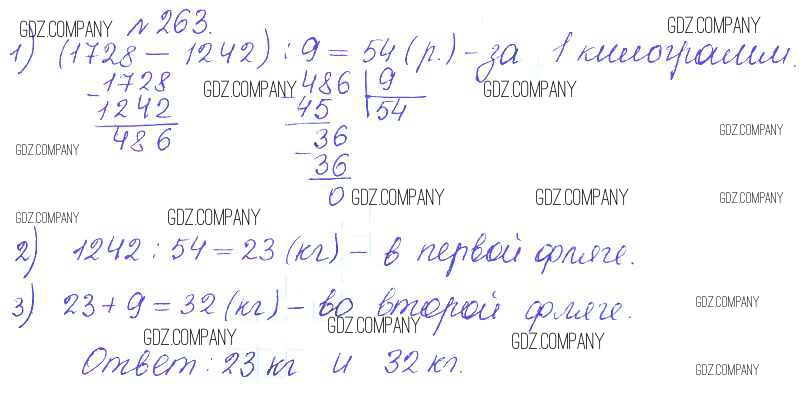 № 263.
GDZ.COMPANY GDZ.COMPANY
1) (1728 - 1242) : 9 = 54 (р.) - за 1 килограмм.
-1728 -486 | 9
1242 45 54
486 36
-36
0
GDZ.COMPANY GDZ.COMPANY
GDZ.COMPANY GDZ.COMPANY
GDZ.COMPANY GDZ.COMPANY GDZ.COMPANY
GDZ.COMPANY GDZ.COMPANY
2) 1242 : 54 = 23 (кг) - в первой фляге.
3) 23 + 9 = 32 (кг) - во второй фляге.
GDZ.COMPANY
GDZ.COMPANY GDZ.COMPANY GDZ.COMPANY
Ответ: 23 кг и 32 кг.
GDZ.COMPANY